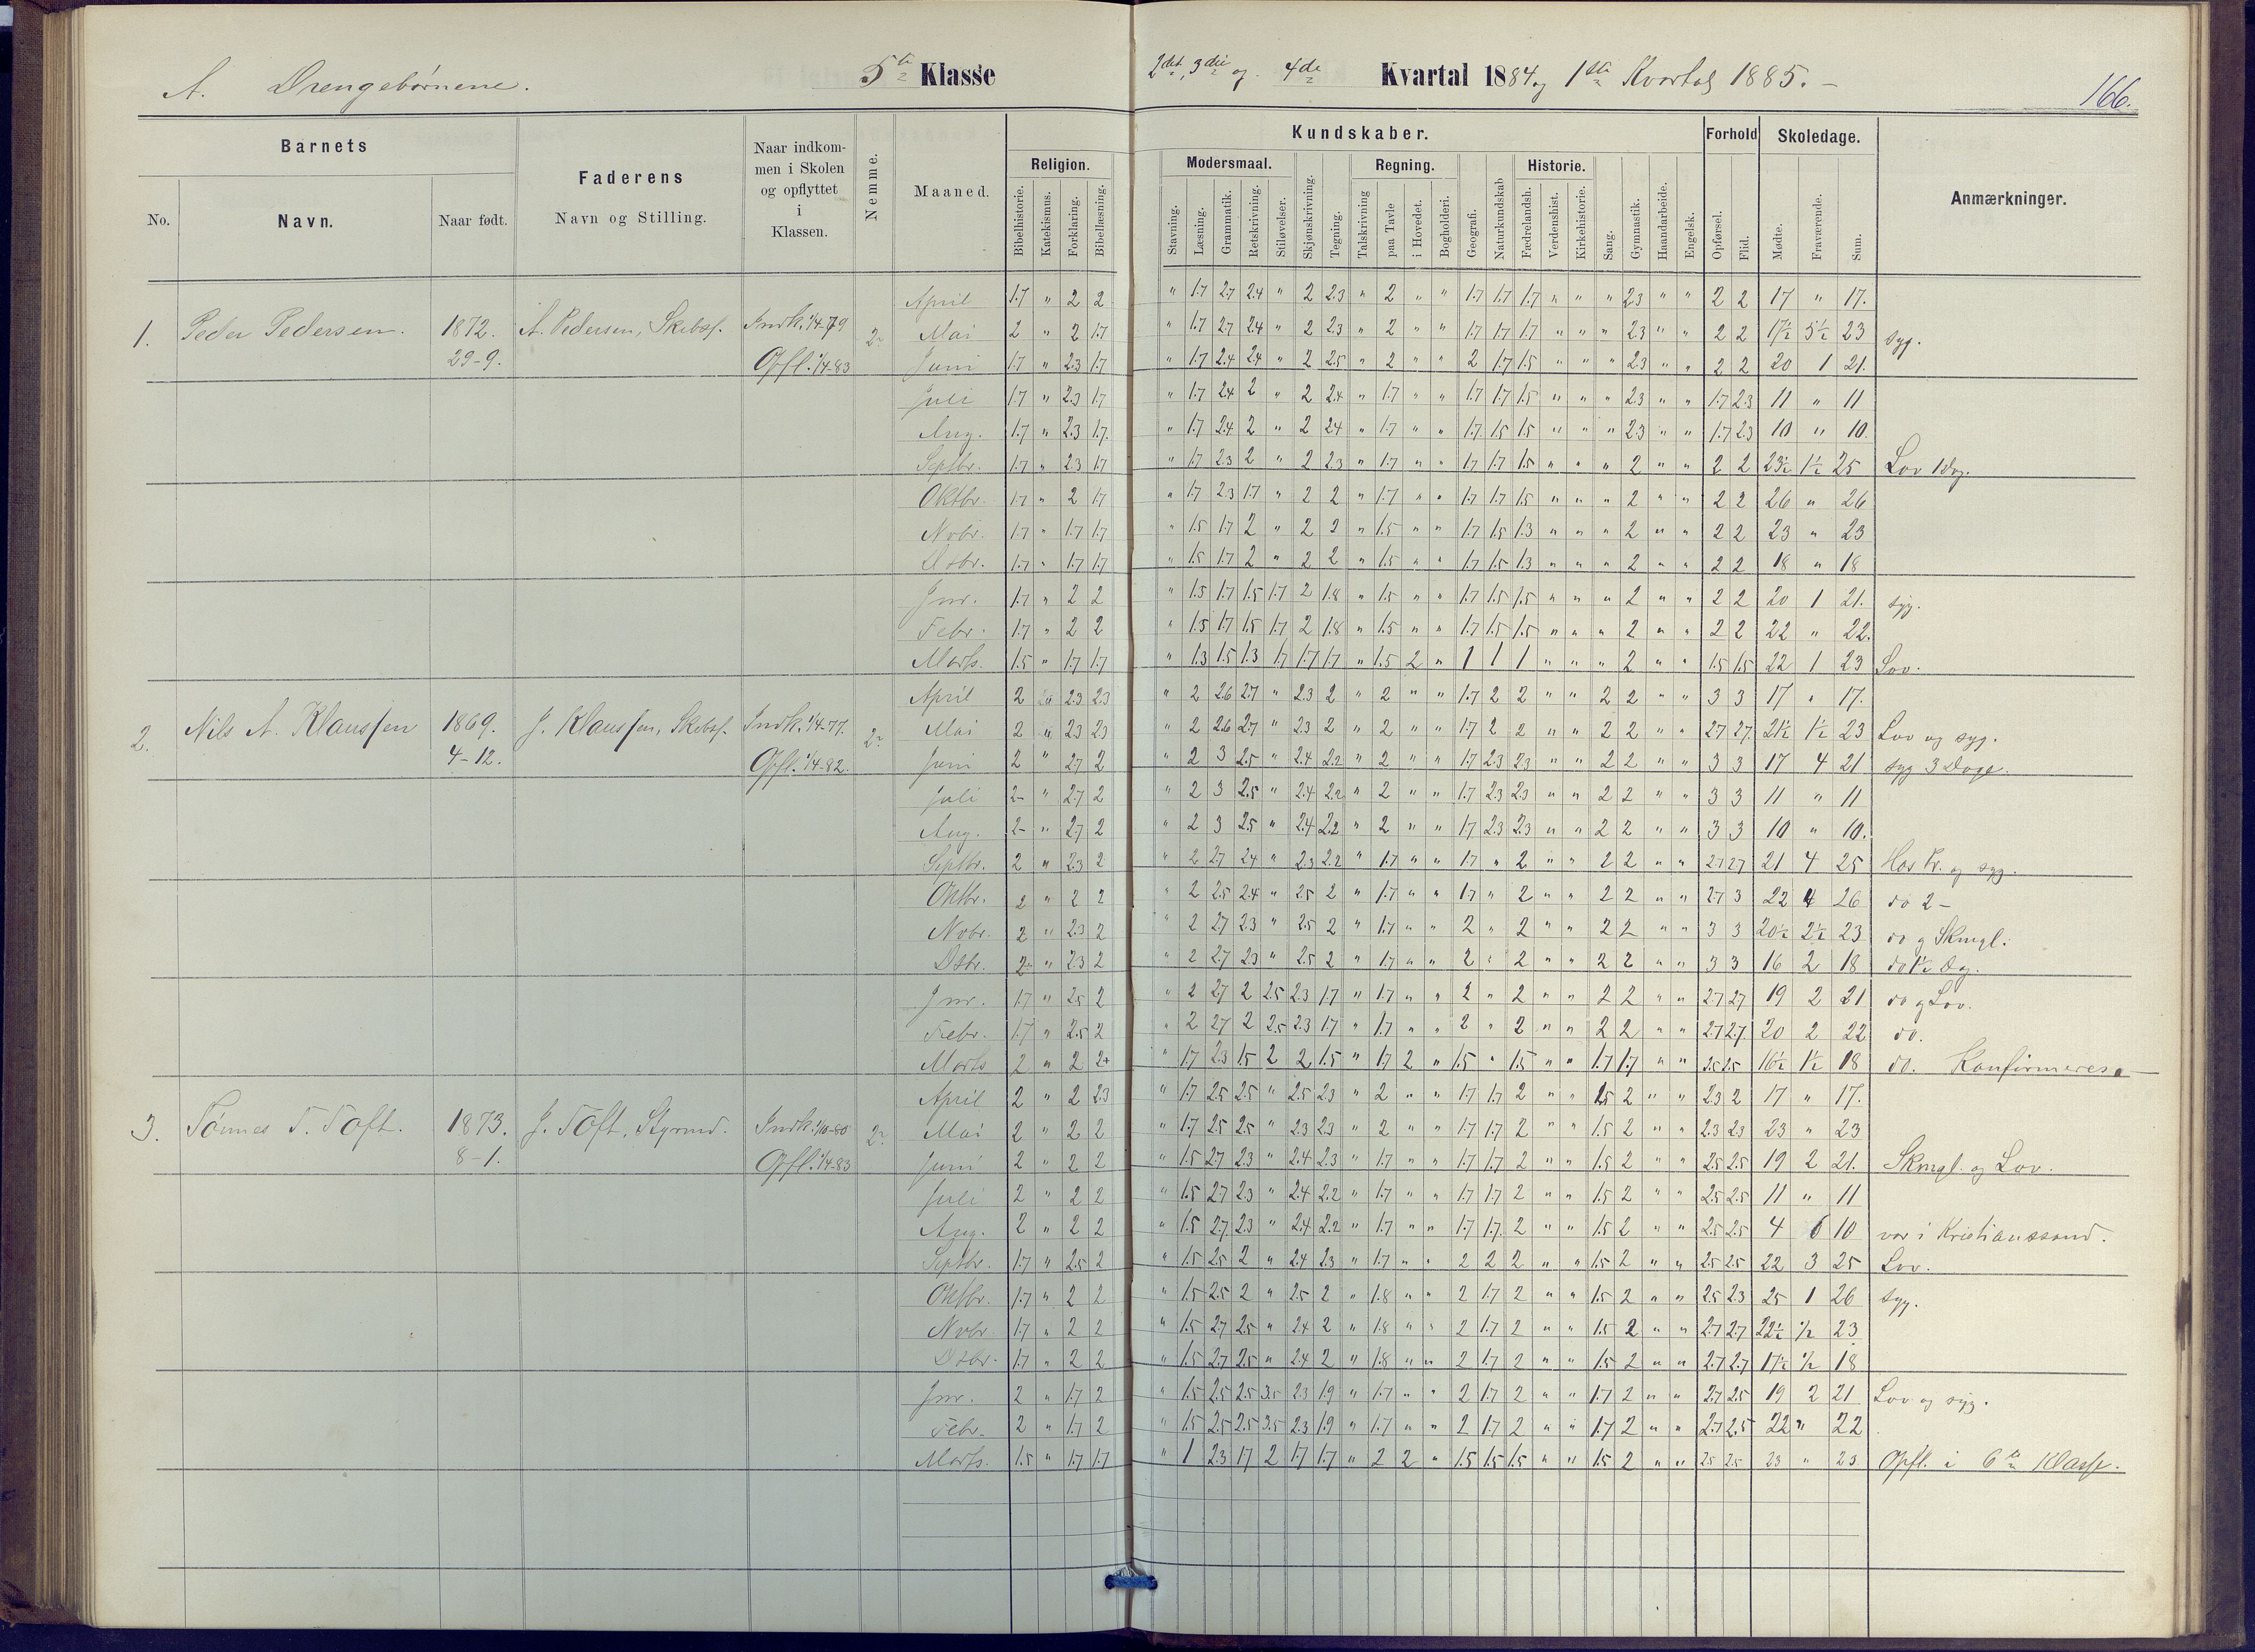 A. Drengebørnene. 5te Klasse 2det, 3die og 4de Kvartal 1884 og 1ste Kvartal 1885. –
166.
Barnets
No. Navn. Naar født.
Faderens
Navn og Stilling.
Naar indkom-
men i Skolen
og opflyttet
i
Klassen.
Nemme.
Maaned.
Kundskaber.
Religion.
Bibelhistorie. Katekismus. Forklaring. Bibellæsning.
Modersmaal.
Stavning. Læsning. Grammatik. Retskrivning. Stiløvelser.
Skjønskrivning. Tegning.
Regning.
Talskrivning paa Tavle i Hovedet. Bogholderi.
Geografi. Naturkundskab
Historie.
Fædrelandsh. Verdenshist. Kirkehistorie.
Sang. Gymnastik. Haandarbeide. Engelsk.
Forhold
Opførsel. Flid.
Skoledage.
Mødte. Fraværende. Sum.
Anmærkninger.
1. Peder Pedersen. 1872. 29-9. A. Pedersen, Skibsf. Indk. 1/4-79 Opfl. 1/4-83 2.
April 1.7 " 2 2 " 1.7 2.7 2.4 " 2 2.3 " 2 " " 1.7 1.7 1.7 " " " 2.3 " " 2 2 17 " 17.
Mai 2 " 2 1.7 " 1.7 2.7 2.4 " 2 2.3 " 2 " " 1.7 1.7 1.7 " " " 2.3 " " 2 2 17½ 5½ 23 syg.
Juni 1.7 " 2.3 1.7 " 1.7 2.4 2.4 " 2 2.5 " 2 " " 2 1.7 1.5 " " " 2.3 " " 2 2 20 1 21.
Juli 1.7 " 2.3 1.7 " 1.7 2.4 2 " 2 2.4 " 1.7 " " 1.7 1.7 1.5 " " " 2.3 " " 1.7 2.3 11 " 11
Aug. 1.7 " 2.3 1.7. " 1.7 2.4 2 " 2 2.4 " 1.7 " " 1.7 1.5 1.5 " " " 2.3 " " 1.7 2.3 10 " 10.
Septbr. 1.7 " 2.3 1.7 " 1.7 2.3 2 " 2 2.3 " 1.7 " " 1.7 1.7 1.5 " " " 2 " " 2 2 23½ 1½ 25 Lov 1 Dag.
Oktbr. 1.7 " 2 1.7 " 1.7 2.3 1.7 " 2 2 " 1.7 " " 1.7 1.7 1.5 " " " 2 " " 2 2 26 " 26
Nvbr. 1.7 " 1.7 1.7 " 1.5 1.7 2 " 2 2 " 1.5 " " 1.7 1.5 1.3 " " " 2 " " 2 2 23 " 23
Dsbr. 1.7 " 1.7 1.7 " 1.5 1.7 2 " 2 2 " 1.5 " " 1.7 1.5 1.3 " " " 2 " " 2 2 18 " 18
Jnr. 1.7 " 2 2 " 1.5 1.7 1.5 1.7 2 1.8 " 1.5 " " 1.7 1.5 1.5 " " " 2 " " 2 2 20 1 21. syg.
Febr. 1.7 " 2 2 " 1.5 1.7 1.5 1.7 2 1.8 " 1.5 " " 1.7 1.5 1.5 " " " 2 " " 2 2 22 " 22.
Marts. 1.5 " 1.7 1.7 " 1.3 1.5 1.3 1.7 1.7 1.7 " 1.5 2 " 1 1 1 " " " 2 " " 1.5 1.5 22 1 23 Lov.
2. Nils A. Klaussen 1869. 4-12. J. Klaussen, Skibsf. Indk. 1/4-77. Opfl. 1/4-82. 2.
April 2 " 2.3 2.3 " 2 2.6 2.7 " 2.3 2 " 2 " " 1.7 2 2 " " 2 2 " " 3 3 17 " 17.
Mai 2 " 2.3 2.3 " 2 2.6 2.7 " 2.3 2 " 2 " " 1.7 2 2 " " 2 2 " " 2.7 2.7 21½ 1½ 23 Lov og syg.
Juni 2 " 2.7 2 " 2 3 2.5 " 2.4 2.2 " 2 " " 1.7 2.3 2.3 " " 2 2 " " 3 3 17 4 21 syg 3 Dage.
Juli 2 " 2.7 2 " 2 3 2.5 " 2.4 2.2 " 2 " " 1.7 2.3 2.3 " " 2 2 " " 3 3 11 " 11
Aug. 2 " 2.7 2 " 2 3 2.5 " 2.4 2.2 " 2 " " 1.7 2.3 2.3 " " 2 2 " " 3 3 10 " 10.
Septbr. 2 " 2.3 2 " 2 2.7 2.4 " 2.3 2.2 " 1.7 " " 1.7 " 2 " " 2 2 " " 2.7 2.7 21 4 25 Hos Pr. og syg.
Oktbr. 2 " 2 2 " 2 2.5 2.4 " 2.5 2 " 1.7 " " 1.7 " 2 " " 2 2 " " 2.7 3 22 4 26 do 2 –
Nvbr. 2 " 2.3 2 " 2 2.7 2.3 " 2.5 2 " 1.7 " " 2 " 2 " " 2 2 " " 3 3 20½ 2½ 23 do g Skmgl.
Dsbr. 2 " 2.3 2 " 2 2.7 2.3 " 2.5 2 " 1.7 " " 2 " 2 " " 2 2 " " 3 3 16 2 18 do 1½ Dg.
Jnr. 1.7 " 2.5 2 " 2 2.7 2 2.5 2.3 1.7 " 1.7 " " 2 " 2 " " 2 2 " " 2.7 2.7 19 2 21 do g Lov.
Febr. 1.7 " 2.5 2 " 2 2.7 2 2.5 2.3 1.7 " 1.7 " " 2 " 2 " " 2 2 " " 2.7 2.7 20 2 22 do.
Marts 2 " 2 2 " 1.7 2.3 1.5 2 2 1.5 " 1.7 2 " 1.5 " 1.5 " " 1.7 1.7 " " 2.5 2.5 16½ 1½ 18 do. Konfirmeres. –
3. Tönnes T. Toft. 1873. 8-1. J. Toft, Styrmd. Indk. 1/10-80 Opfl. 1/4-83 2.
April 2 " 2 2.3 " 1.7 2.5 2.5 " 2.5 2.3 " 2 " " 1.7 1.7 2 " " 1.5 2 " " 2.3 2 17 " 17.
Mai 2 " 2 2 " 1.7 2.5 2.5 " 2.3 2.3 " 2 " " 1.7 1.7 2 " " 1.5 2 " " 2.3 2.3 23 " 23
Juni 2 " 2 2 " 1.5 2.7 2.3 " 2.4 2.3 " 1.7 " " 1.7 1.7 2 " " 1.5 2 " " 2.5 2.5 19 2 21. Skmgl. og Lov.
Juli 2 " 2 2 " 1.5 2.7 2.3 " 2.4 2.2 " 1.7 " " 1.7 1.7 2 " " 1.5 2 " " 2.5 2.5 11 " 11
Aug. 2 " 2 2 " 1.5 2.7 2.3 " 2.4 2.2 " 1.7 " " 1.7 1.7 2 " " 1.5 2 " " 2.5 2.5 4 6 10 var i Kristianssand.
Septbr. 1.7 " 2.5 2 " 1.5 2.5 2 " 2.4 2.3 " 1.7 " " 2 2 2 " " 1.5 2 " " 2.5 2.5 22 3 25 Lov.
Oktbr. 1.7 " 2 2 " 1.5 2.5 2 " 2.5 2 " 1.8 " " 2 1.7 2 " " 1.5 2 " " 2.5 2.3 25 1 26 syg.
Nvbr. 1.7 " 2 2 " 1.5 2.7 2.5 " 2.4 2 " 1.8 " " 2 1.7 2 " " 1.5 2 " " 2.7 2.7 22½ ½ 23
Dsbr. 1.7 " 2 2 " 1.5 2.7 2.5 " 2.4 2 " 1.8 " " 2 1.7 2 " " 1.5 2 " " 2.7 2.7 17½ ½ 18
Jnr. 2 " 1.7 2 " 1.5 2.5 2.5 3.5 2.3 1.9 " 1.7 " " 2 1.7 2 " " 1.7 2 " " 2.7 2.5 19 2 21 Lov og syg.
Febr. 2 " 1.7 2 " 1.5 2.5 2.5 3.5 2.3 1.9 " 1.7 " " 2 1.7 2 " " 1.7 2 " " 2.7 2.5 22 " 22
Marts. 1.5 " 1.7 1.7 " 1 2.3 1.7 2 1.7 1.7 " 2 2 " 1.5 1.5 1.5 " " 1.5 2 " " 2.5 2.5 23 " 23 Opfl. i 6te Klasse.